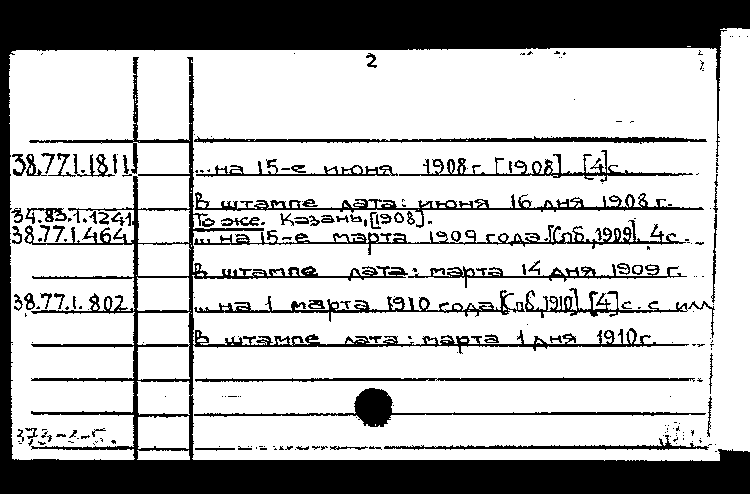 2
38.77.1.1811. ...на 15-е июня 1908 г. [1908]. [4]с.
В штампе дата: июня 16 дня 1908 г.
34.83.1.1241 То же. Казань, [1908].
38.77.1.464. ... на 15-е марта 1909 года. [Спб., 1909]. 4с.
В штампе дата: марта 14 дня 1909 г.
38.77.1.802. ... на 1 марта 1910 года. [Спб., 1910]. [4]с. с илл
В штампе дата: марта 1 дня 1910 г.
373-2-5.